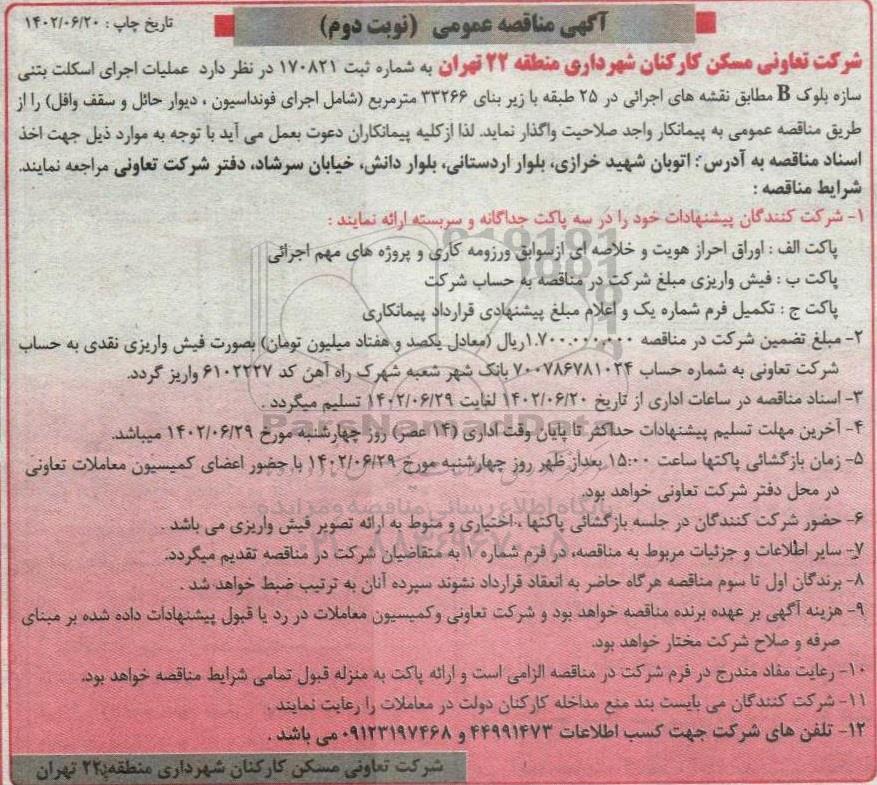 آگهی مناقصه عمومی (نوبت دوم)
تاریخ چاپ : ۱۴۰۲/۰۶/۲۰
شرکت تعاونی مسکن کارکنان شهرداری منطقه ۲۲ تهران به شماره ثبت ۱۷۰۸۲۱ در نظر دارد عملیات اجرای اسکلت بتنی
سازه بلوک B مطابق نقشه های اجرائی در ۲۵ طبقه با زیر بنای ۳۳۲۶۶ مترمربع (شامل اجرای فونداسیون ، دیوار حائل و سقف وافل) را از
طریق مناقصه عمومی به پیمانکار واجد صلاحیت واگذار نماید. لذا ازکلیه پیمانکاران دعوت بعمل می آید با توجه به موارد ذیل جهت اخذ
اسناد مناقصه به آدرس : اتوبان شهید خرازی، بلوار اردستانی، بلوار دانش، خیابان سرشاد، دفتر شرکت تعاونی مراجعه نمایند.
شرایط مناقصه :
۱- شرکت کنندگان پیشنهادات خود را در سه پاکت جداگانه و سربسته ارائه نمایند :
پاکت الف : اوراق احراز هویت و خلاصه ای ازسوابق ورزومه کاری و پروژه های مهم اجرائی
پاکت ب : فیش واریزی مبلغ شرکت در مناقصه به حساب شرکت
پاکت ج : تکمیل فرم شماره یک و اعلام مبلغ پیشنهادی قرارداد پیمانکاری
۲- مبلغ تضمین شرکت در مناقصه ۱.۷۰۰.۰۰۰.۰۰۰ریال (معادل یکصد و هفتاد میلیون تومان) بصورت فیش واریزی نقدی به حساب
شرکت تعاونی به شماره حساب ۷۰۰۷۸۶۷۸۱۰۲۴ بانک شهر شعبه شهرک راه آهن کد ۶۱۰۲۲۲۷ واریز گردد.
۳- اسناد مناقصه در ساعات اداری از تاریخ ۱۴۰۲/۰۶/۲۰ لغایت ۱۴۰۲/۰۶/۲۹ تسلیم میگردد .
۴- آخرین مهلت تسلیم پیشنهادات حداکثر تا پایان وقت اداری (۱۴ عصر) روز چهارشنبه مورخ ۱۴۰۲/۰۶/۲۹ میباشد.
۵- زمان بازگشائی پاکتها ساعت ۱۵:۰۰ بعداز ظهر روز چهارشنبه مورخ ۱۴۰۲/۰۶/۲۹ با حضور اعضای کمیسیون معاملات تعاونی
در محل دفتر شرکت تعاونی خواهد بود.
۶- حضور شرکت کنندگان در جلسه بازگشائی پاکتها ، اختیاری و منوط به ارائه تصویر فیش واریزی می باشد .
۷- سایر اطلاعات و جزئیات مربوط به مناقصه، در فرم شماره ۱ به متقاضیان شرکت در مناقصه تقدیم میگردد.
۸- برندگان اول تا سوم مناقصه هرگاه حاضر به انعقاد قرارداد نشوند سپرده آنان به ترتیب ضبط خواهد شد .
۹- هزینه آگهی بر عهده برنده مناقصه خواهد بود و شرکت تعاونی وکمیسیون معاملات در رد یا قبول پیشنهادات داده شده بر مبنای
صرفه و صلاح شرکت مختار خواهد بود.
۱۰- رعایت مفاد مندرج در فرم شرکت در مناقصه الزامی است و ارائه پاکت به منزله قبول تمامی شرایط مناقصه خواهد بود.
۱۱- شرکت کنندگان می بایست بند منع مداخله کارکنان دولت در معاملات را رعایت نمایند .
۱۲- تلفن های شرکت جهت کسب اطلاعات ۴۴۹۹۱۴۷۳ و ۰۹۱۲۳۱۹۷۴۶۸ می باشد .
شرکت تعاونی مسکن کارکنان شهرداری منطقه ۲۲ تهران
ParsNamadData
پایگاه اطلاع رسانی مناقصه و مزایده